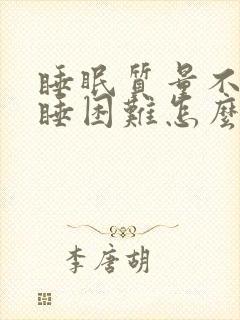 睡眠質量不
睡困難怎麼
李唐胡